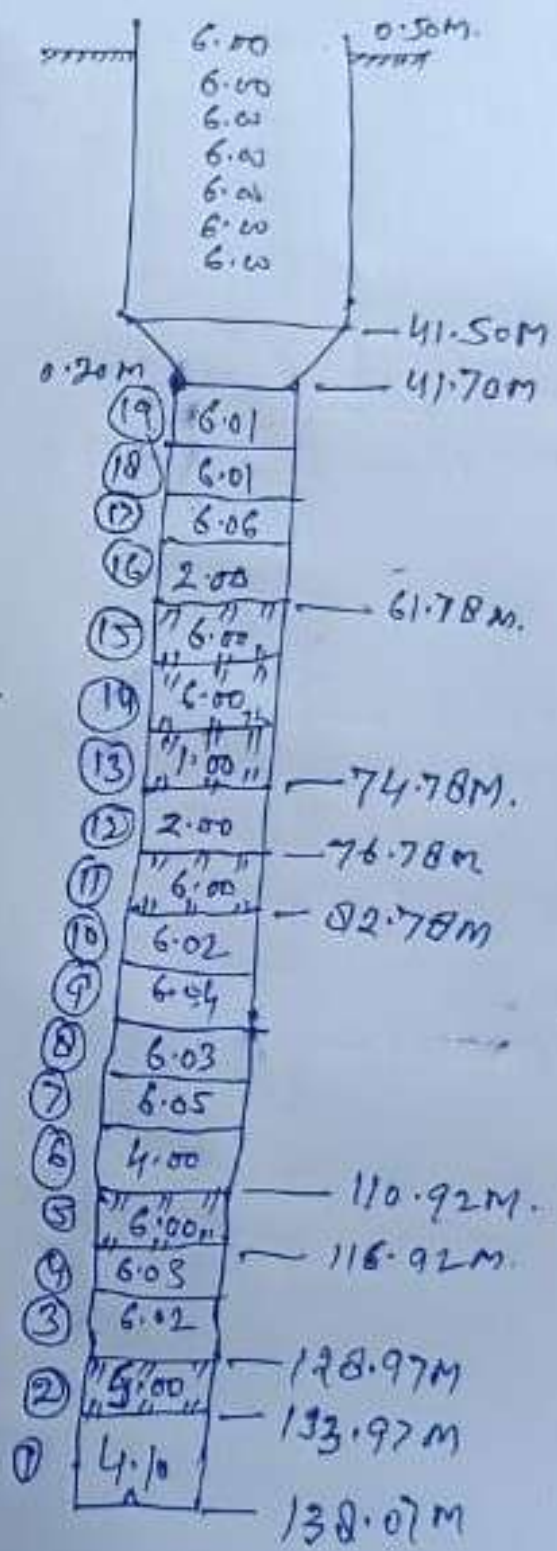 6.00 0.50M.
6.00
6.00
6.00
6.00
6.00
6.00
41.50M
0.20M 41.70M
19 6.01
18 6.01
17 6.06
16 2.00
61.78M.
15 6.00
14 6.00
13 1.00
74.78M.
12 2.00
76.78M
11 6.00
82.78M
10 6.02
9 6.04
8 6.03
7 6.05
6 4.00
110.92M.
5 6.00
116.92M.
4 6.03
3 6.02
128.97M
2 5.00
133.97M
1 4.10
138.07M